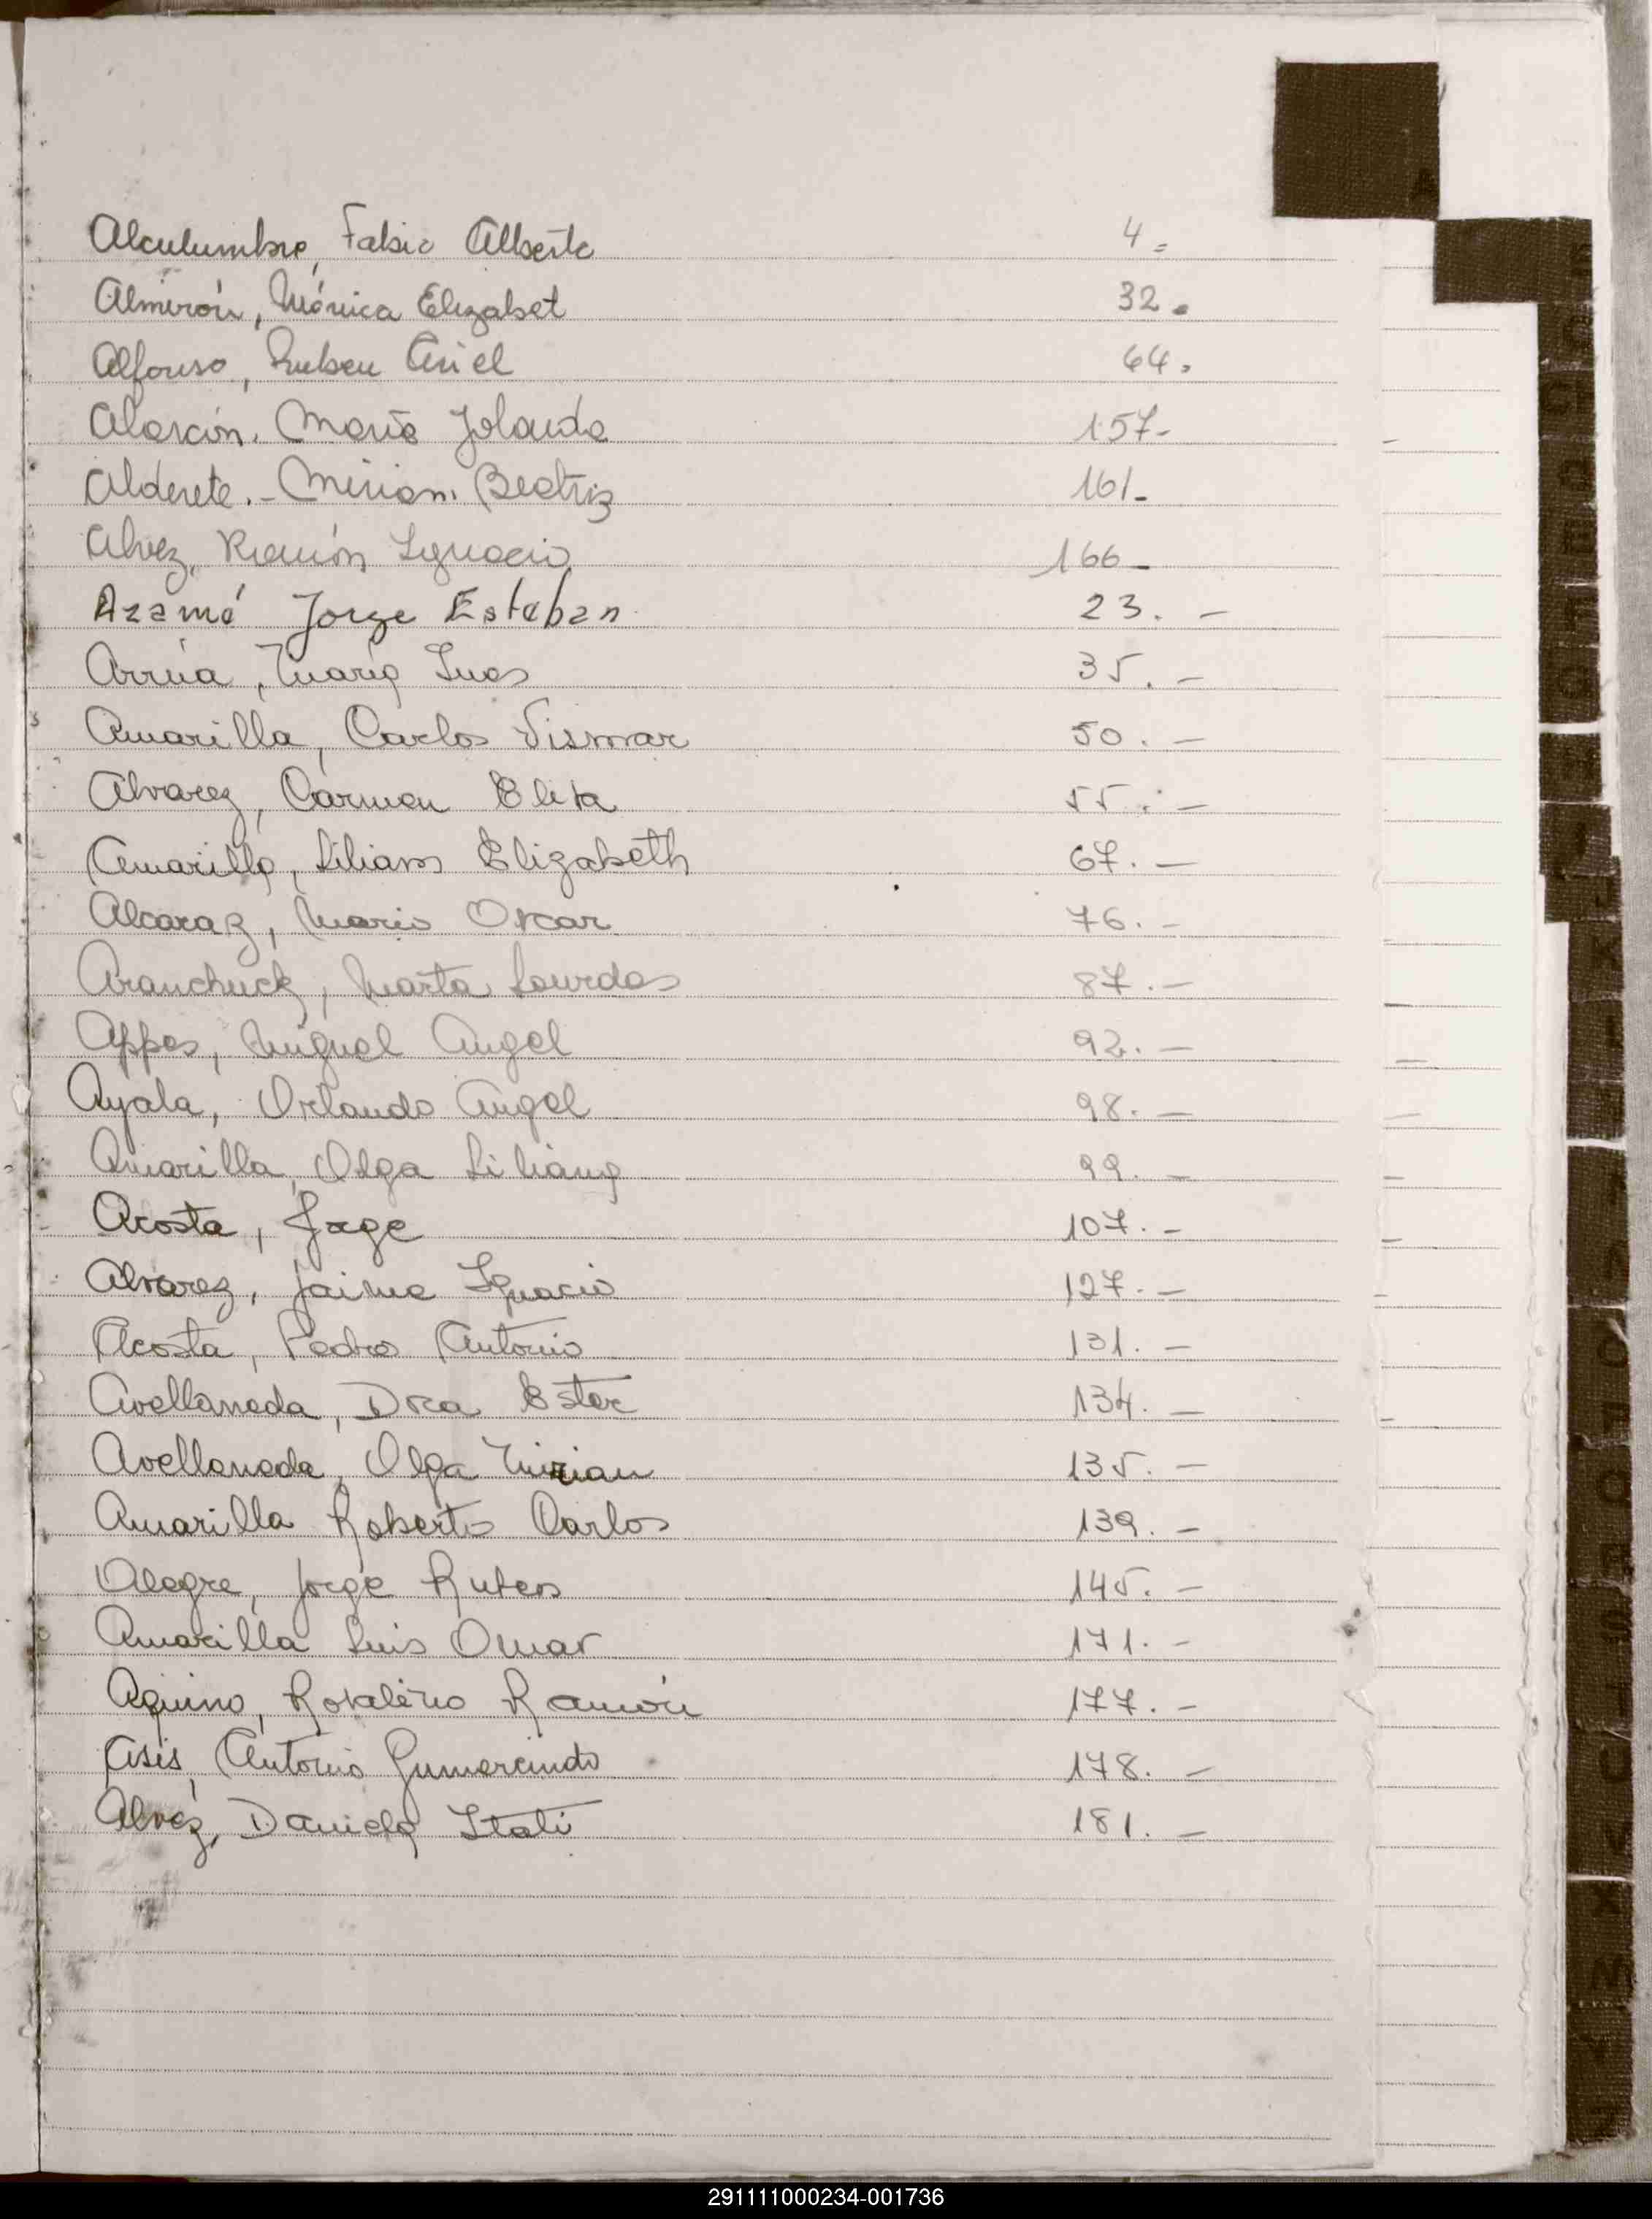 Alculumbre, Fabio Alberto 4=
Almirón, Mónica Elizabet 32.
Alfonso, Ruben Ariel 64.
Alarcón. María Yolanda 157-
Alderete.- Mirian Beatriz 161-
Alvez, Ramón Ignacio 166-
Azamé Jorge Esteban 23.-
Arrúa, María Ines 35.-
Amarilla, Carlos Vismar 50.-
Alvarez, Carmen Elisa 55.-
Amarilla, Liliana Elizabeth 67.-
Alcaraz, Mario Oscar 76.-
Aranchuck, Marta Lourdes 87.-
Appes, Miguel Angel 92.-
Ayala, Orlando Angel 98.-
Amarilla, Olga Liliana 99.-
Acosta, Jorge 107.-
Alvarez, Jaime Ignacio 127.-
Acosta, Pedro Antonio 131.-
Avellaneda, Ester 134.-
Avellaneda, Olga Mirian 135.-
Amarilla Roberto Carlos 139.-
Alegre, Jorge Ruben 145.-
Amarilla Luis Omar 171.-
Aquino, Ramón 177.-
Asis, Antonio Gumercindo 178.-
Alvez, Daniela Itatí 181.-
291111000234-001736